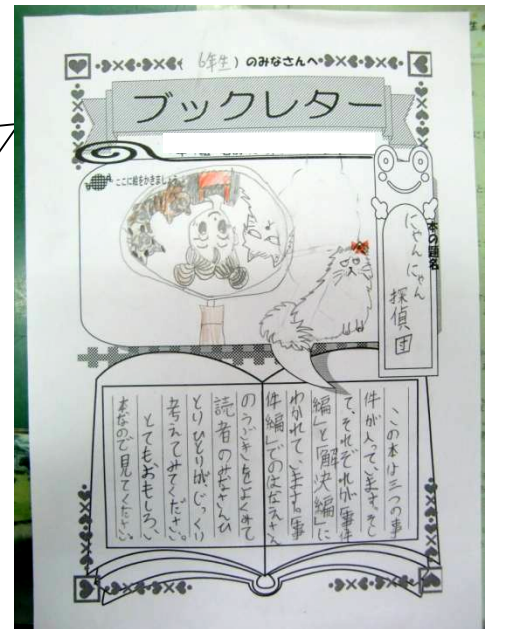 6年生）のみなさんへ
ブックレター
ここに絵をかきましょう
本の題名
にゃんにゃん
探偵団
この本は三つの事
件が入っています。そし
て、それぞれが「事件
編」と「解決編」に
わかれています。「事
件編」でのはなえさん
のうごきをよくみて
読者のみなさんひ
とりひとりがじっくり
考えてみてください。
とてもおもしろい
本なので見てください。